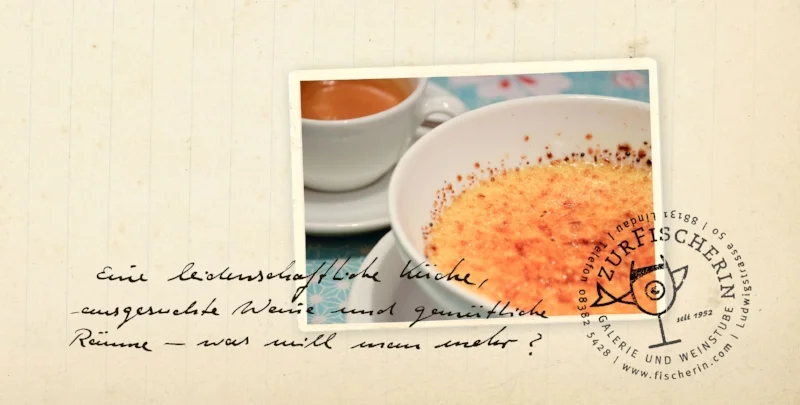 Eine leidenschaftliche Küche,
ausgesuchte Weine und gemütliche
Räume – was will man mehr?
ZUR FISCHERIN
seit 1952
GALERIE UND WEINSTUBE
Ludwigstrasse 50 | 88131 Lindau | Telefon 08382 5428 | www.fischerin.com |